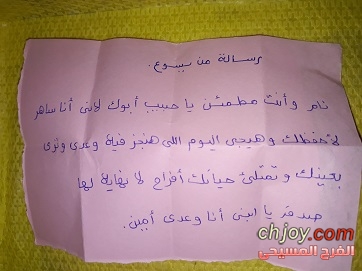 رسالة من يسوع.
نام وأنت مطمئن يا حبيب أبوك لأنى أنا ساهر
لأحفظك وهيجى اليوم اللى هنجز فية وعدى وترى
بعينك وتمتلئ حياتك أفراح لا نهاية لها
صدقد يا ابنى أنا وعدى أمين.
chjoy.com
الفرح المسيحى